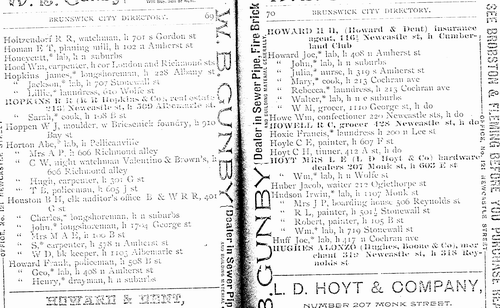 BRUNSWICK CITY DIRECTORY. 69
Holtzendorf R R, watchman, h 701 s Gordon st
Homan E T, planing mill, h 102 n Amherst st
Honeycut,* lab, h n suburbs
Hood Wm, carpenter, h cor London and Richmond sts
Hopkins James,* longshoreman, h 228 Albany st
" Jackson,* lab, h 707 Stonewall st
" Lillie,* laundress, 610 Wolfe st
" Sarah,* cook, h 108 B st
Hoppen W J, moulder, w Brieseinck foundry, h 910 Bay st
Horton Abe,* lab, h Pellicanville
" Mrs A P, h 606 Richmond alley
" C W, night watchman Valentino & Brown's, h 606 Richmond alley
" Hugh, carpenter, h 501 G st
" T E, policeman, h 605 J st
Houston B H, clk auditor's office B & W R R, 401 G st
" Charles,* longshoreman, h n suburbs
" John,* longshoreman, h 1704 George st
" Mrs M A E, h 100 B st
" S,* carpenter, h 528 n Amherst st
" W D, bk keeper, h 1103 Albemarle st
Howard Frank, policeman, h 508 B st
" Geo,* lab, h 408 n Amherst st
" Henry,* drayman, h n suburbs
HOWARD & DENT,
W. B. GUNBY (Dealer in Sewer Pipe
70 BRUNSWICK CITY DIRECTORY.
HOWARD H H, (Howard & Dent) insurance agent, 116½ Newcastle st, h Cumberland Club
Howard Joe,* lab, h 408 n Amherst st
" John,* lab, h n suburbs
" Julia,* nurse, h 319 s Amherst st
" Mary,* cook, h 213 Cochran ave
" Rebecca,* laundress, h 213 Cochran ave
" Walter,* lab, h n e suburbs
" W M, grocer, 1120 George st, h do
Howe Wm, confectioner 220 Newcastle sts, h do
HOWELL R C, grocer 428 Newcastle st, h do
Hoxie Francis,* laundress h 200 n Lee st
Hoyle C E, painter, h 607 F st
Hoyt C H, timber, 412 A st, h do
HOYT MRS L E (L D Hoyt & Co) hardware dealers 207 Newcastle st, h 603 E st
" Wm,* lab, h n Wolfe st
Huber Jacob, waiter 217 Oglethorpe st
Hudson Irwin,* lab, h 1107 Monk st
" Mrs J P, boarding house, 506 Reynolds st
" R L, painter, h 501½ Stonewall st
" Robert, painter, h 105 B st
" Wm,* lab, h 719 Stonewall st
Huff Joe,* lab, h 417 n Cochran ave
HUGHES ALONZO (Hughes, Boone & Co), merchant 315 Newcastle st, h 318 Reynolds st
L. D. HOYT & COMPANY,
NUMBER 207 MONK STREET.
B. GUNBY (Dealer in Sewer Pipe, Fire Brick
SEE BROBSTON & FLEMING BEFORE YOU PURCHASE